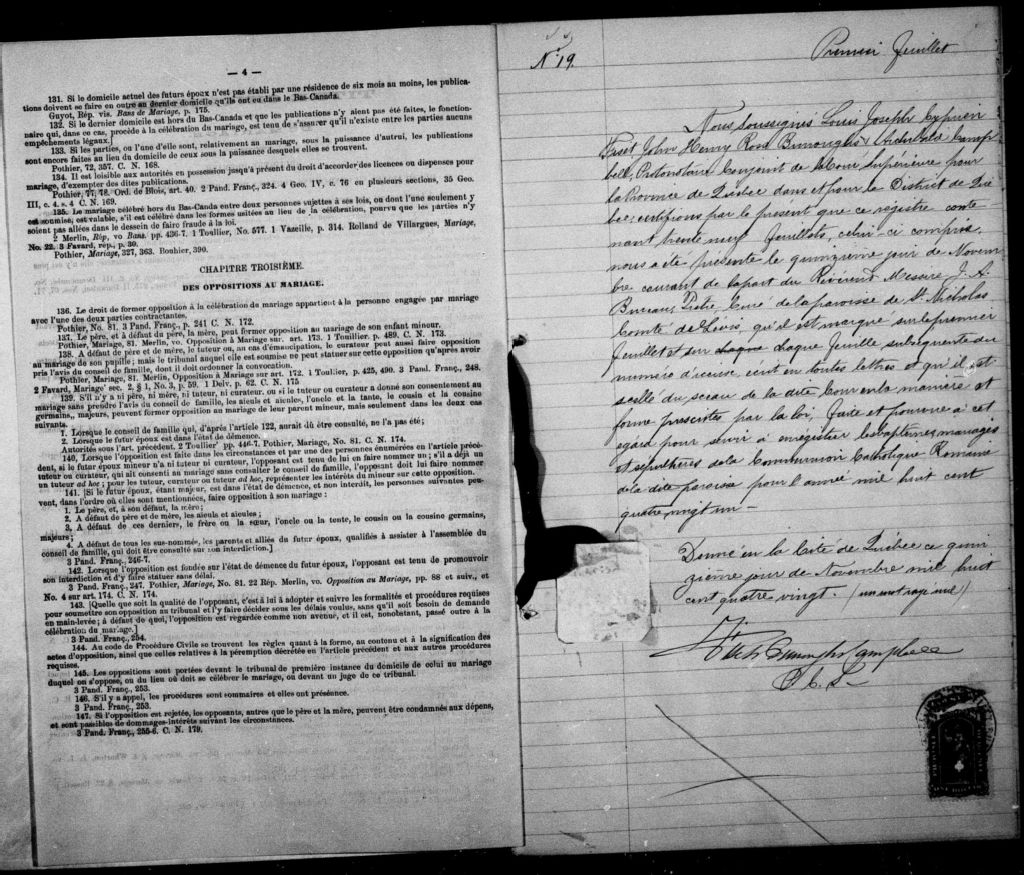 — 4 —
131. Si le domicile actuel des futurs époux n'est pas établi par une résidence de six mois au moins, les publica-
tions doivent se faire en outre au dernier domicile qu'ils ont eu dans le Bas-Canada.
Guyot, Rép. vis. Bans de Mariage, p. 175.
132. Si le dernier domicile est hors du Bas-Canada et que les publications n'y aient pas été faites, le fonction-
naire qui, dans ce cas, procède à la célébration du mariage, est tenu de s'assurer qu'il n'existe entre les parties aucuns
empêchements légaux.
133. Si les parties, ou l'une d'elles, sont relativement au mariage, sous la puissance d'autrui, les publications
sont encore faites au lieu du domicile de ceux sous la puissance desquels elles se trouvent.
Pothier, 72, 357. C. N. 168.
134. Il est loisible aux autorités en possession jusqu'à présent du droit d'accorder des licences ou dispenses pour
mariage, d'exempter des dites publications.
Pothier, 77, 78. Ord. de Blois, art. 40. 2 Pand. Franç., 324. 4 Geo. IV, c. 76 en plusieurs sections, 35 Geo.
III, c. 4. s. 4 C. N. 169.
135. Le mariage célébré hors du Bas-Canada entre deux personnes sujettes à ses lois, ou dont l'une seulement y
est soumise, est valable, s'il est célébré dans les formes usitées au lieu de la célébration, pourvu que les parties n'y
soient pas allées dans le dessein de faire fraude à la loi.
2 Merlin, Rép, vo Bans. pp. 436-7. 1 Toullier, No. 577. 1 Vazeille, p. 314. Rolland de Villargues, Mariage,
No. 22. 3 Favard, rép., p. 30.
Pothier, Mariage, 327, 363. Bouhier, 390.
CHAPITRE TROISIÈME.
DES OPPOSITIONS AU MARIAGE.
136. Le droit de former opposition à la célébration du mariage appartient à la personne engagée par mariage
avec l'une des deux parties contractantes.
Pothier, No. 81. 3 Pand. Franç., p. 241 C. N. 172.
137. Le père, et à défaut du père, la mère, peut former opposition au mariage de son enfant mineur.
Pothier, Mariage, 81. Merlin, vo. Opposition à Mariage sur. art. 173. 1 Toullier, p. 489. C. N. 173.
138. A défaut de père et de mère, le tuteur ou, au cas d'émancipation, le curateur peut aussi faire opposition
au mariage de son pupille; mais le tribunal auquel elle est soumise ne peut statuer sur cette opposition qu'après avoir
pris l'avis du conseil de famille, dont il doit ordonner la convocation.
Pothier, Mariage, 81. Merlin, Opposition à Mariage sur art. 172. 1 Toullier, p. 425, 490. 3 Pand. Franç., 248.
2 Favard, Mariage sec. 2, § 1, No. 3, p. 59. 1 Delv. p. 62. C. N. 175
139. S'il n'y a ni père, ni mère, ni tuteur, ni curateur, ou si le tuteur ou curateur a donné son consentement au
mariage sans prendre l'avis du conseil de famille, les aïeuls et aïeules, l'oncle et la tante, le cousin et la cousine
germains, majeurs, peuvent former opposition au mariage de leur parent mineur, mais seulement dans les deux cas
suivants.
1. Lorsque le conseil de famille qui, d'après l'article 122, aurait dû être consulté, ne l'a pas été;
2. Lorsque le futur époux est dans l'état de démence.
Autorités sous l'art. précédent. 2 Toullier pp. 446-7. Pothier, Mariage, No. 81. C. N. 174.
140. Lorsque l'opposition est faite dans les circonstances et par une des personnes énumérées en l'article précé-
dent, si le futur époux mineur n'a ni tuteur ni curateur, l'opposant est tenu de lui en faire nommer un; s'il a déjà un
tuteur ou curateur, qui ait consenti au mariage sans consulter le conseil de famille, l'opposant doit lui faire nommer
un tuteur ad hoc; pour les tuteur, curateur ou tuteur ad hoc, représenter les intérêts du mineur sur cette opposition.
141. [Si le futur époux, étant majeur, est dans l'état de démence, et non interdit, les personnes suivantes peu-
vent, dans l'ordre où elles sont mentionnées, faire opposition à son mariage:
1. Le père, et, à son défaut, la mère;
2. A défaut de père et de mère, les aïeuls et aïeules;
3. A défaut de ces derniers, le frère ou la sœur, l'oncle ou la tente, le cousin ou la cousine germains,
majeurs;
4. A défaut de tous les sus-nommés, les parents et alliés du futur époux, qualifiés à assister à l'assemblée du
conseil de famille, qui doit être consulté sur son interdiction.]
3 Pand. Franç., 246-7.
142. Lorsque l'opposition est fondée sur l'état de démence du futur époux, l'opposant est tenu de promouvoir
son interdiction et d'y faire statuer sans délai.
3 Pand. Franç., 247. Pothier, Mariage, No. 81. 22 Rép. Merlin, vo. Opposition au Mariage, pp. 88 et suiv., et
No. 4 sur art. 174. C. N. 174.
143. [Quelque soit la qualité de l'opposant, c'est à lui à adopter et suivre les formalités et procédures requises
pour soumettre son opposition au tribunal et l'y faire décider sous les délais voulus, sans qu'il soit besoin de demande
en main-levée; à défaut de quoi, l'opposition est regardée comme non avenue, et il est, nonobstant, passé outre à la
célébration du mariage.]
3 Pand. Franç., 254.
144. Au code de Procédure Civile se trouvent les règles quant à la forme, au contenu et à la signification des
actes d'opposition, ainsi que celles relatives à la péremption décrétée en l'article précédent et aux autres procédures
requises.
145. Les oppositions sont portées devant le tribunal de première instance du domicile de celui au mariage
duquel on s'oppose, ou du lieu où doit se célébrer le mariage, ou devant un juge de ce tribunal.
3 Pand. Franç., 253.
146. S'il y a appel, les procédures sont sommaires et elles ont préséance.
3 Pand. Franç., 253.
147. Si l'opposition est rejetée, les opposants, autres que le père et la mère, peuvent être condamnés aux dépens,
et sont passibles de dommages-intérêts suivant les circonstances.
3 Pand. Franç., 255-6. C. N. 179.
No. 19.
Premier feuillet
Nous soussignés Louis Joseph Cyprien
Fiset John Henry Ross Burroughs & Archibald Campb-
bell, Protonotaire Conjoint de la Cour Supérieure pour
la Province de Québec dans et pour le District de Qué
bec certifions par le présent que ce registre conte-
nant trente neuf feuillets, celui-ci compris.
nous a été présenté le quinzième jour de Novem
bre courant de la part du Révérend Messire J. A.
Bureau, Ptre, Curé de la paroisse de St. Nicholas
Comté de Lévis, qu'il est marqué sur le premier
feuillet et sur chaque feuille subséquente du
numéro d'iceux, écrit en toutes lettres et qu'il est
scellé du sceau de la dite Cour en la manière et
forme prescrites par la loi. Faite et pourvue à cet
égard pour servir à enregistrer les baptêmes, mariages
et sépultures de la Communion Catholique Romaine
de la dite paroisse pour l'année mil huit cent
quatre vingt un —
Donné en la Cité de Québec ce quin
zième jour de Novembre mil huit
cent quatre vingt. (un mot rayé nul)
Fiset Burroughs Campbell
P. C. S.
ONE DOLLAR